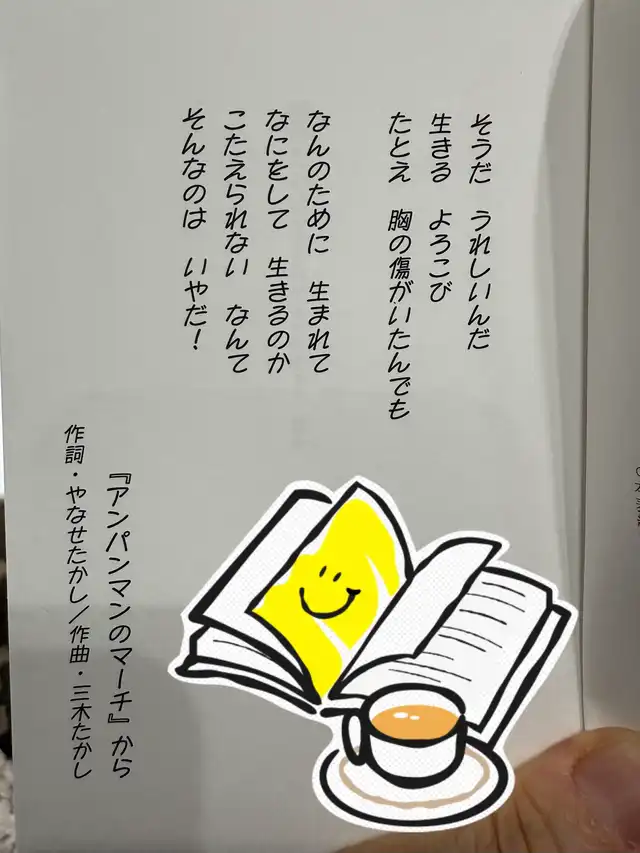 そうだ うれしいんだ
生きる よろこび
たとえ 胸の傷がいたんでも
なんのために 生まれて
なにをして 生きるのか
こたえられない なんて
そんなのは いやだ!
『アンパンマンのマーチ』から
作詞・やなせたかし/作曲・三木たかし